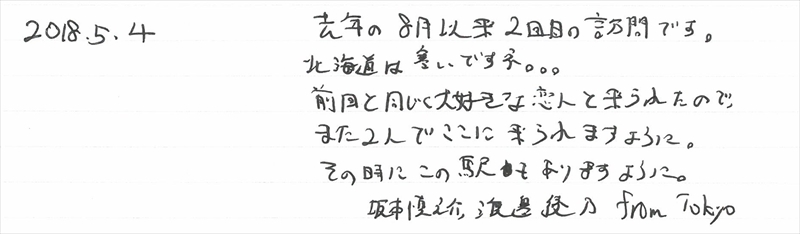 2018.5.4
去年の8月以来2回目の訪問です。
北海道は寒いですネ。。。
前回と同じく大好きな恋人と来られたので
また2人でここに来られますように。
その時にこの駅もありますように。
坂本慎介、渡邉 乃 from Tokyo